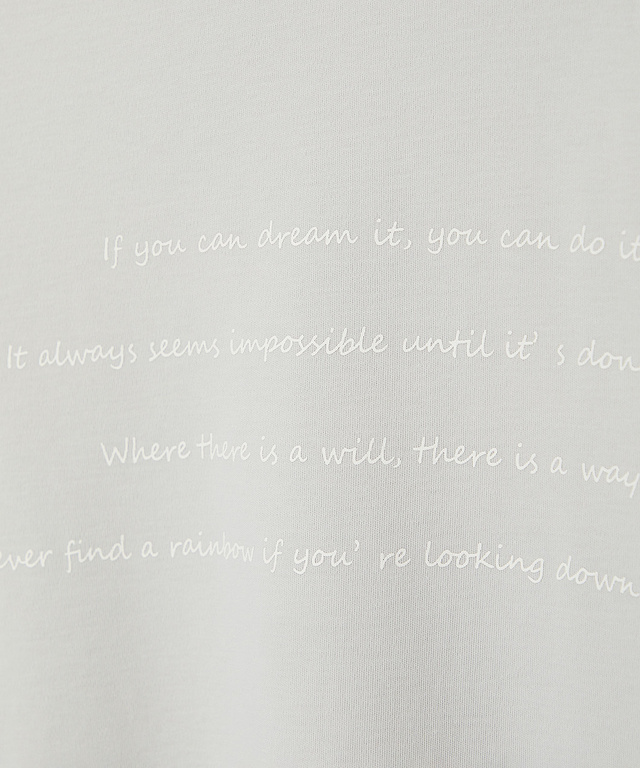 If you can dream it, you can do it
It always seems impossible until it’ s don
Where there is a will, there is a way
ever find a rainbow if you’ re looking down